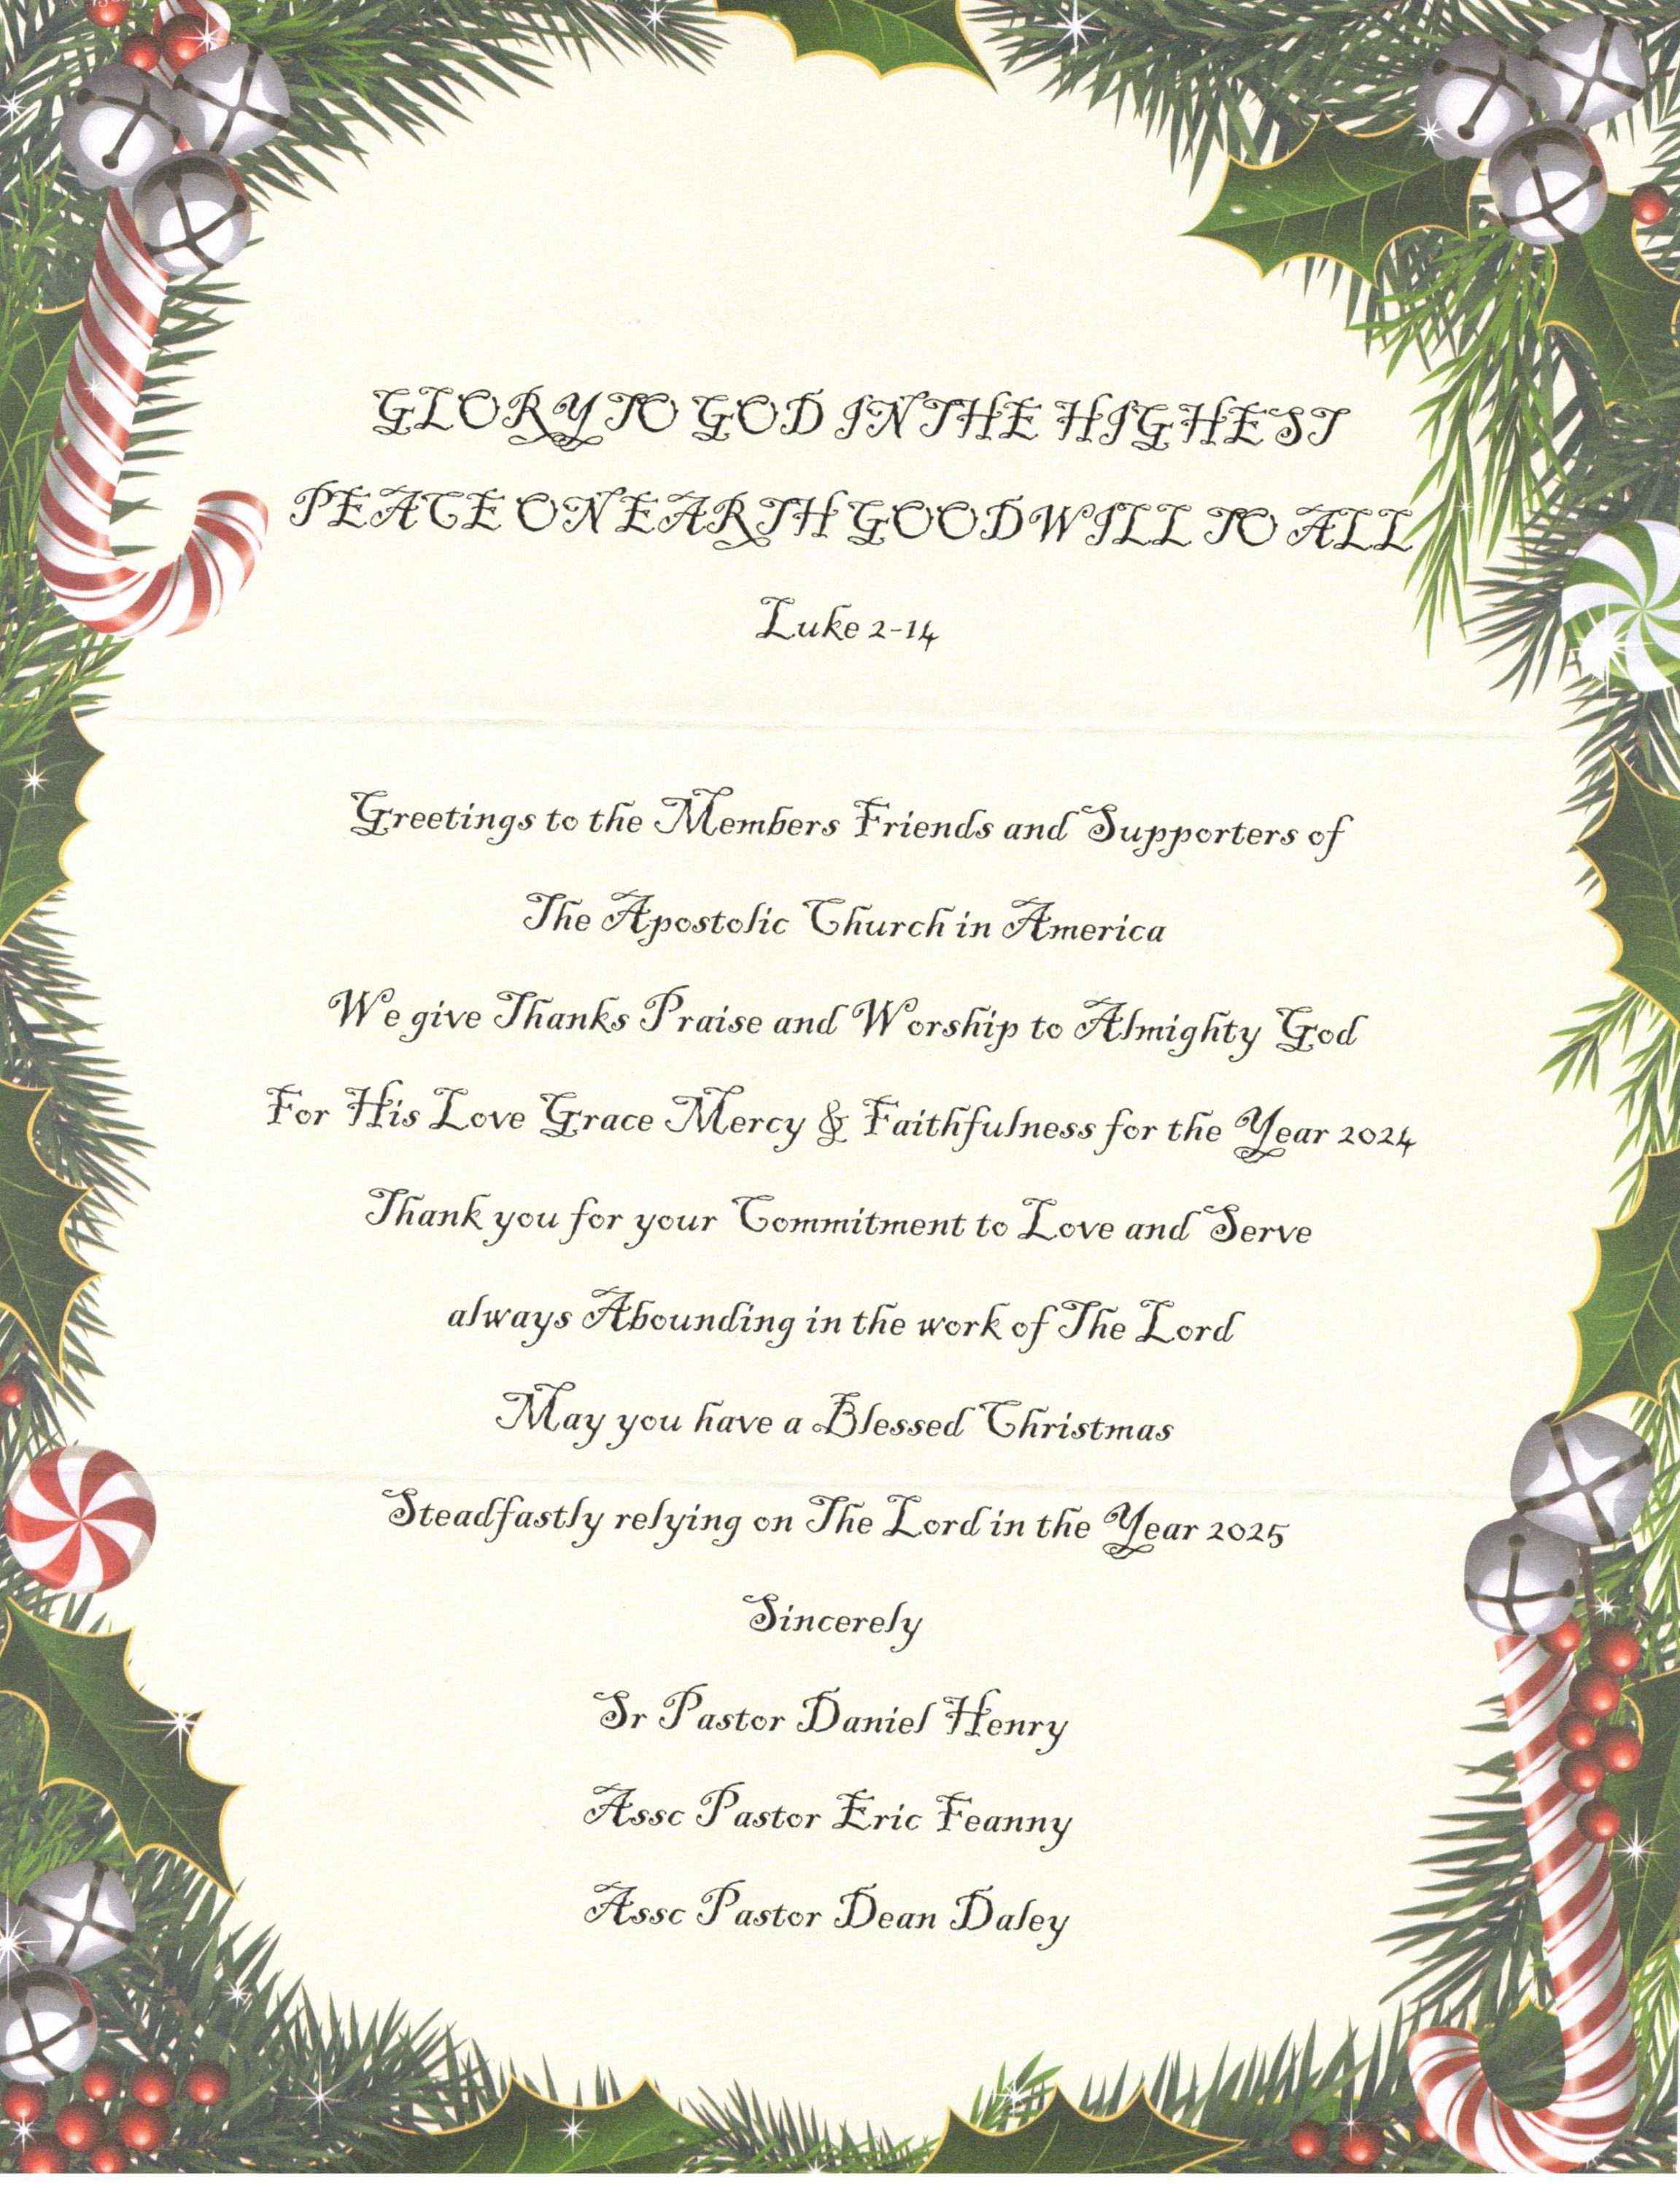 GLORY TO GOD IN THE HIGHEST
PEACE ON EARTH GOODWILL TO ALL
Luke 2-14
Greetings to the Members Friends and Supporters of
The Apostolic Church in America
We give Thanks Praise and Worship to Almighty God
For His Love Grace Mercy & Faithfulness for the Year 2024
Thank you for your Commitment to Love and Serve
always Abounding in the work of The Lord
May you have a Blessed Christmas
Steadfastly relying on The Lord in the Year 2025
Sincerely
Sr Pastor Daniel Henry
Assc Pastor Eric Feanny
Assc Pastor Dean Daley